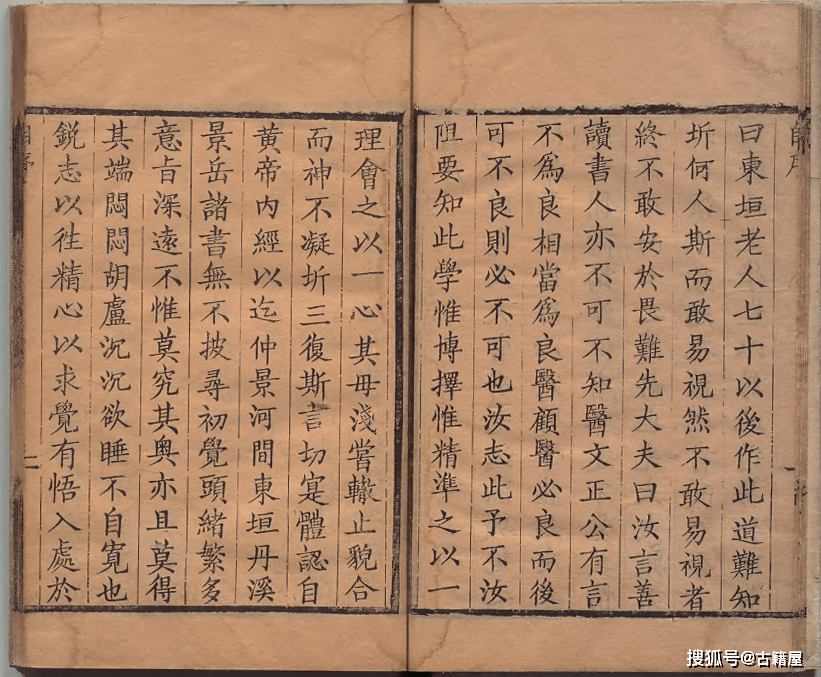 曰東垣老人七十以後作此道難知
圻何人斯而敢易視然不敢易視者
終不敢安於畏難先大夫曰汝言善
讀書人亦不可不知醫文正公有言
不爲良相當爲良醫顧醫必良而後
可不良則必不可也汝志此予不汝
阻要知此學惟博擇惟精準之以一
理會之以一心其毋淺嘗輙止貌合
而神不凝圻三復斯言切寔體認自
黄帝内經以迄仲景河間東垣丹溪
景岳諸書無不披尋初覺頭緒繁多
意旨深遠不惟莫究其奥亦且莫得
其端悶悶胡盧沉沉欲睡不自寬也
鋭志以徃精心以求覺有悟入處於
二
搜狐号@古籍屋